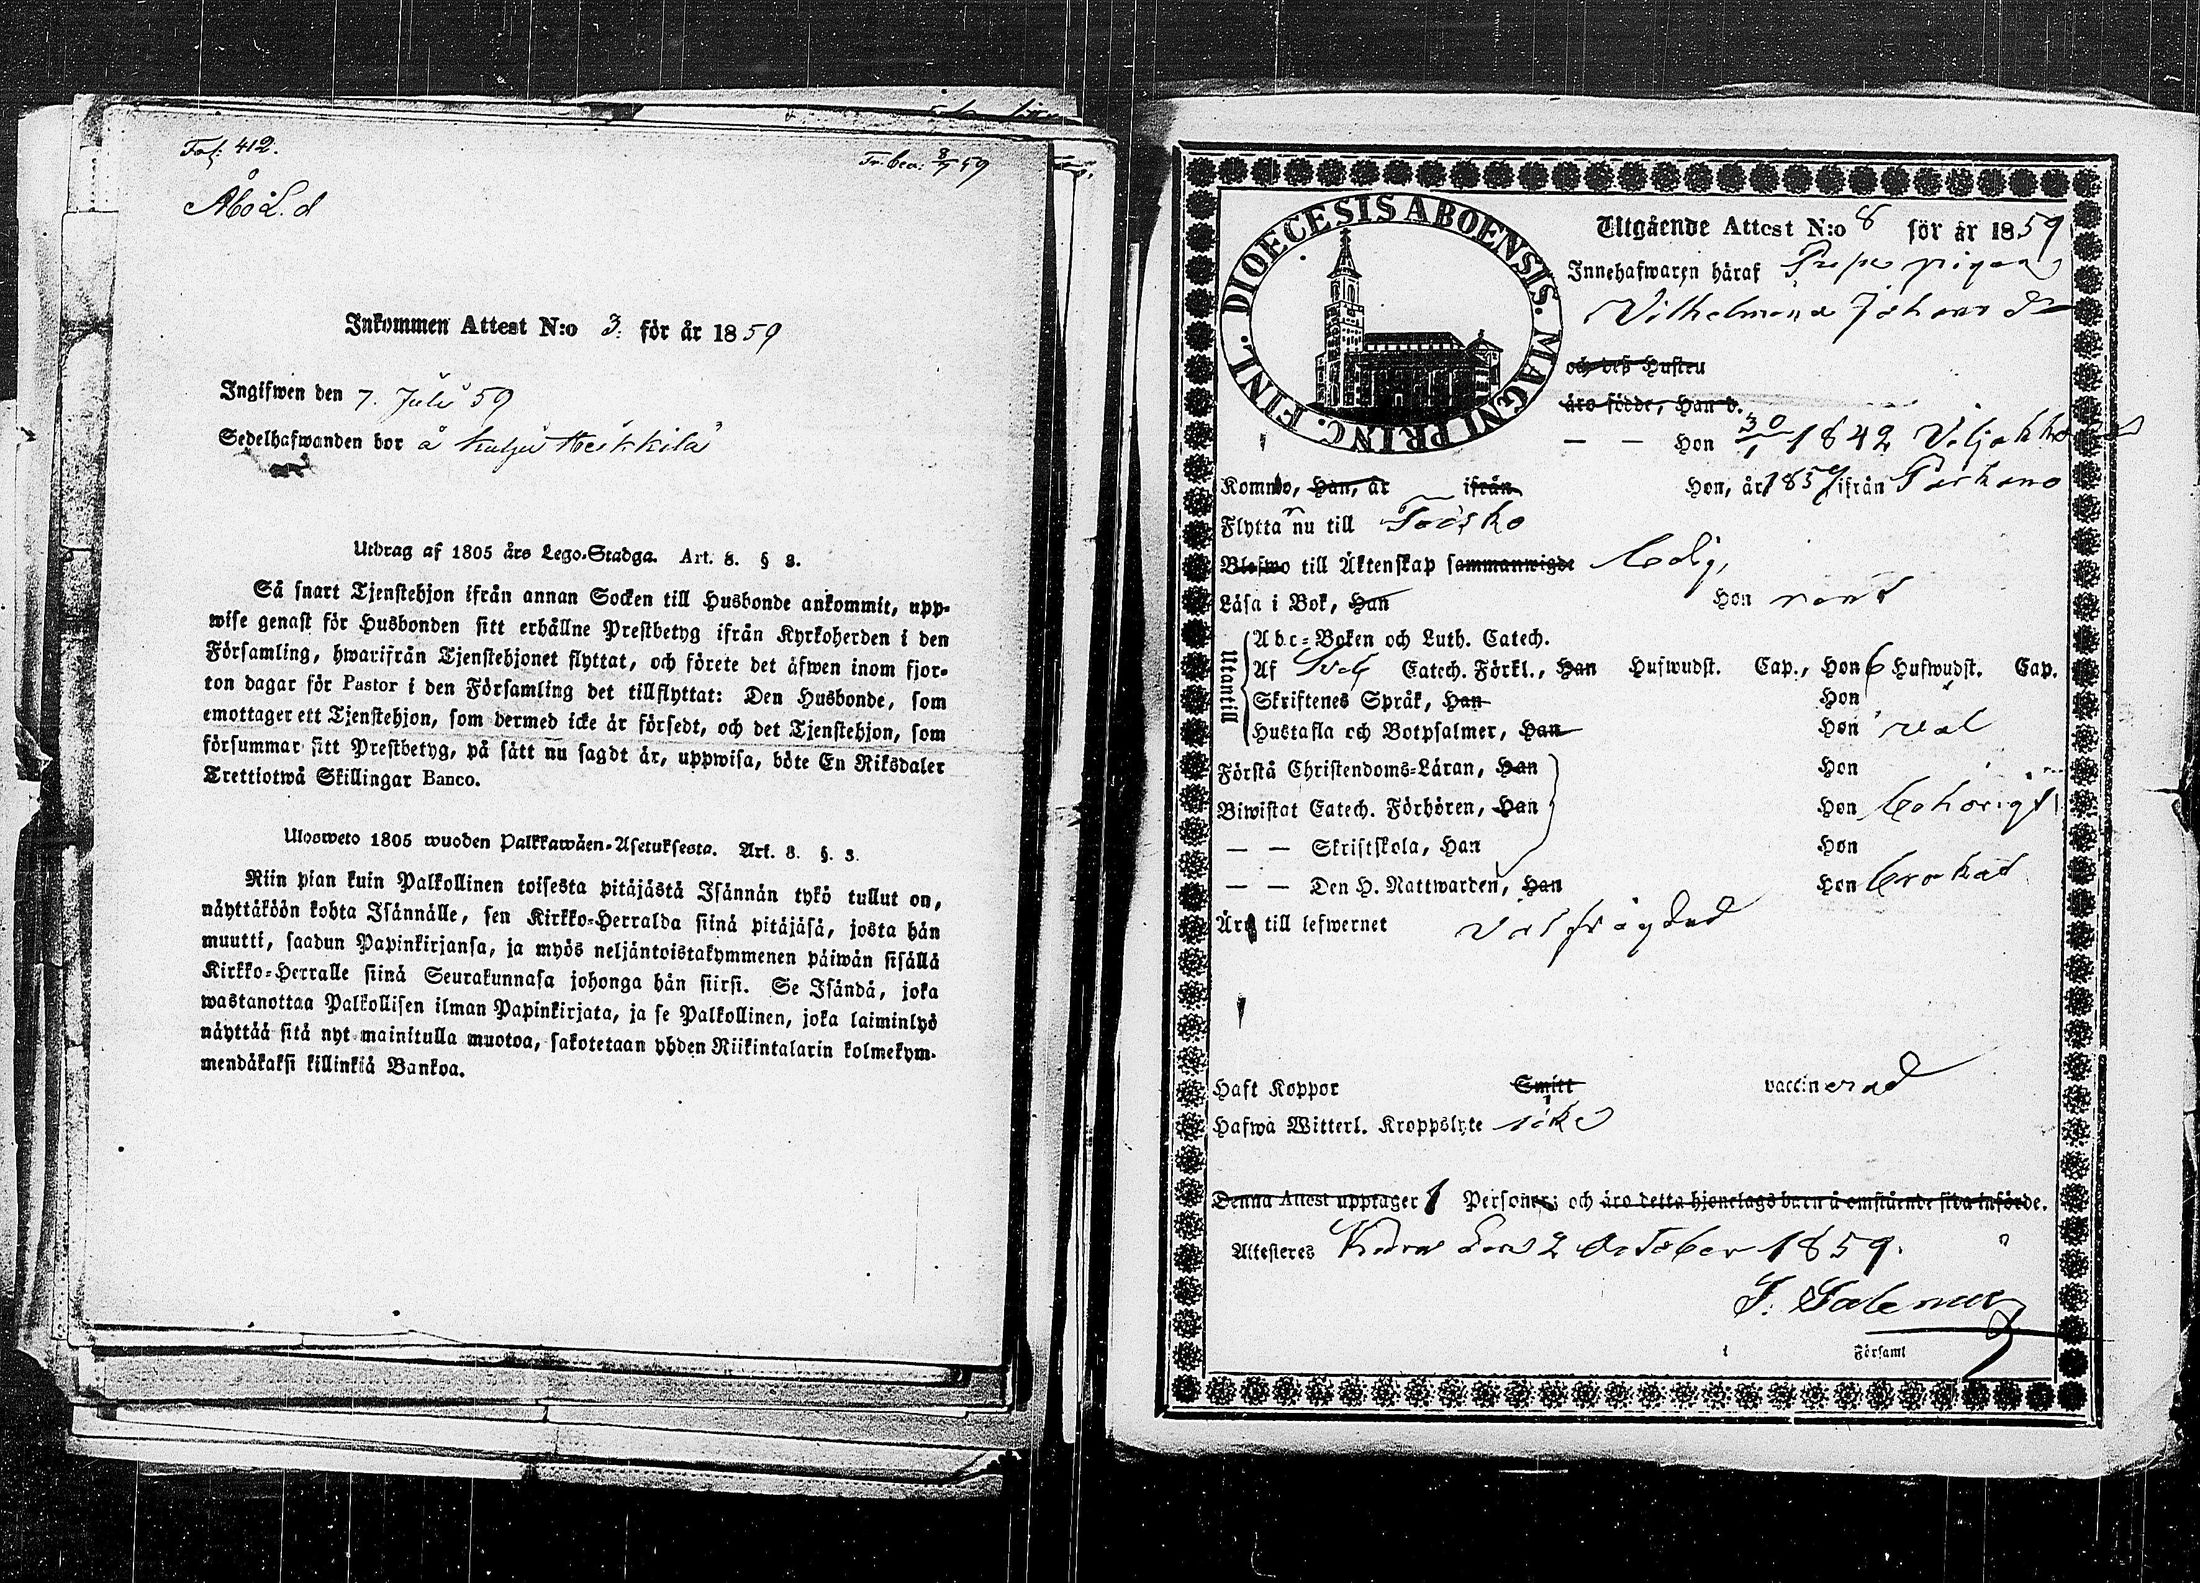 Fol: 412.
Åbo L. d
Inkommen Attest N:o 3. för år 1859
Ingifwen den 7. Juli 59
Sedelhafwanden bor å
Utdrag af 1805 års Lego-Stadga. Art. 8. § 3.
Så snart Tjenstehjon ifrån annan Socken till Husbonde ankommit, upp-
wise genast för Husbonden sitt erhållne Prestbetyg ifrån Kyrkoherden i den
Församling, hwarifrån Tjenstehjonet flyttat, och förete det äfwen inom fjor-
ton dagar för Pastor i den Församling det tillflyttat: Den Husbonde, som
emottager ett Tjenstehjon, som dermed icke är försedt, och det Tjenstehjon, som
försummar sitt Prestbetyg, på sätt nu sagdt är, uppwisa, böte En Riksdaler
Trettiotwå Skillingar Banco.
Ulosweto 1805 wuoden Palkkawäen-Asetuksesta. Art. 8. §. 3.
Niin pian kuin Palkollinen toisesta pitäjästä Isännän tykö tullut on,
näyttäköön kohta Isännälle, sen Kirkko-Herralda siinä pitäjäsä, josta hän
muutti, saadun Papinkirjansa, ja myös neljäntoistakymmenen päiwän sisällä
Kirkko-Herralle siinä Seurakunnasa johonga hän siirsi. Se Isändä, joka
wastanottaa Palkollisen ilman Papinkirjata, ja se Palkollinen, joka laiminlyö
näyttää sitä nyt mainitulla muotoa, sakotetaan yhden Riikintalarin kolmekym-
mendäkaksi killinkiä Bankoa.
DIOECESIS ABOENSIS. MAGNI PRINC. FINL.
Utgående Attest N:o 8 för år 1859
Innehafwaren häraf pigan
Vilhelmina Johans dr
och dess Hustru
äro födde, Han d.
— — Hon 30/1 1842 Viljakkala
Komm o, Han, år ifrån Hon, år 1857 ifrån Parkano
Flytta r nu till Toijsko
Blefwo till Äktenskap sammanwigde Ledig,
Läsa i Bok, Han Hon rent
Utantill
Abc-Boken och Luth. Catech.
Af Sveb Catech. Förkl., Han Hufwudst. Cap., Hon 6 Hufwudst. Cap.
Skriftenes Språk, Han Hon
Hustafla och Botpsalmer, Han Hon väl
Förstå Christendoms-Läran, Han Hon
Biwistat Catech. Förhören, Han Hon behörigt
— — Skriftskola, Han Hon
— — Den H. Nattwarden, Han Hon brukat
Är till lefwernet välfrägdad
Haft Koppor Smitt vaccinerad
Hafwa Witterl. Kroppslyte icke
Denna Attest upptager 1 Personer; och äro detta hjonelags barn å omstående sida införde.
Attesteres Kuru den 2 October 1859.
Församl